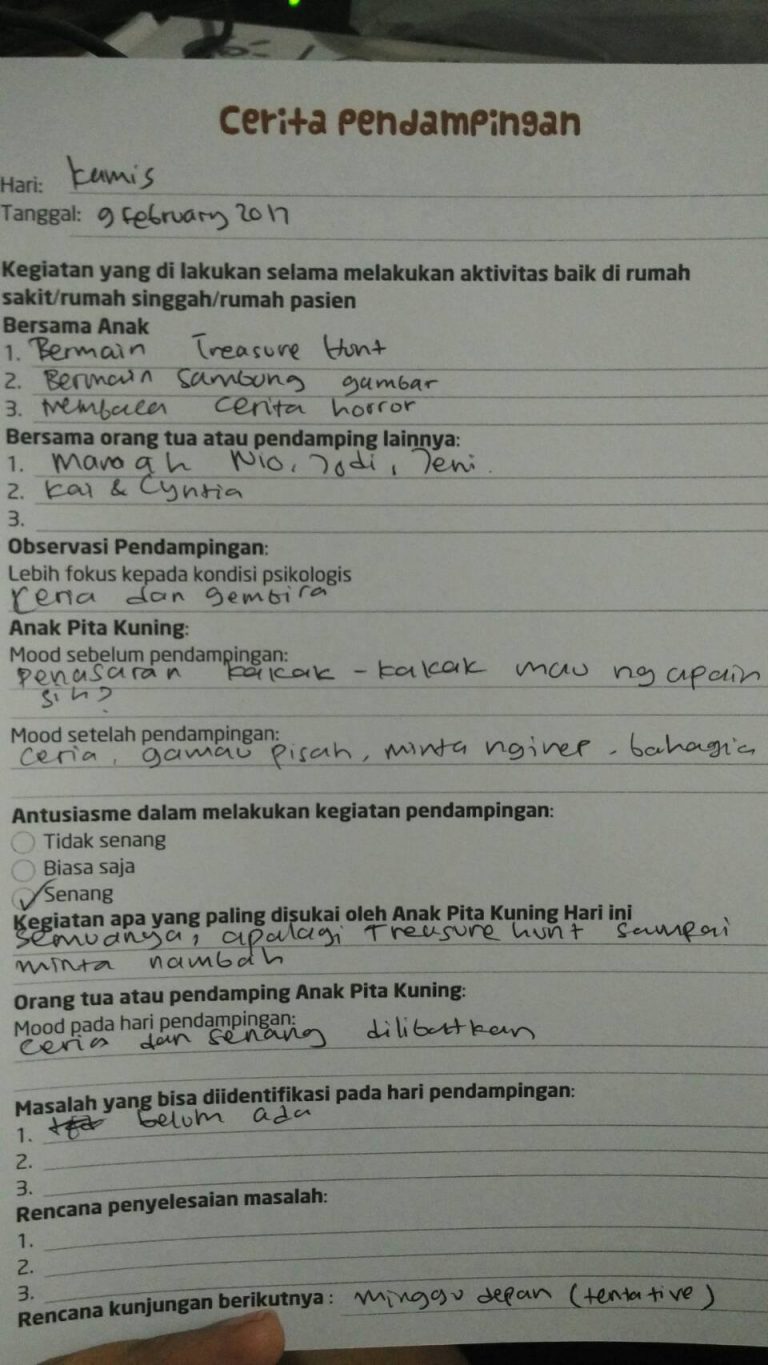 Cerita Pendampingan
Hari: Kamis
Tanggal: 9 February 2017
Kegiatan yang di lakukan selama melakukan aktivitas baik di rumah
sakit/rumah singgah/rumah pasien
Bersama Anak
1. Bermain Treasure Hunt
2. Bermain Sambung gambar
3. Membaca cerita horror
Bersama orang tua atau pendamping lainnya:
1. Nio, Jodi, Jeni.
2. Kai & Cyntia
3.
Observasi Pendampingan:
Lebih fokus kepada kondisi psikologis
ceria dan gembira
Anak Pita Kuning:
Mood sebelum pendampingan:
penasaran kakak - kakak mau ngapain
sih?
Mood setelah pendampingan:
ceria, gamau pisah, minta nginep, bahagia
Antusiasme dalam melakukan kegiatan pendampingan:
Tidak senang
Biasa saja
Senang
Kegiatan apa yang paling disukai oleh Anak Pita Kuning Hari ini
Semuanya, apalagi Treasure hunt sampai
minta nambah
Orang tua atau pendamping Anak Pita Kuning:
Mood pada hari pendampingan:
ceria dan senang dilibatkan
Masalah yang bisa diidentifikasi pada hari pendampingan:
1. belum ada
2.
3.
Rencana penyelesaian masalah:
1.
2.
3.
Rencana kunjungan berikutnya : minggu depan (tentative)